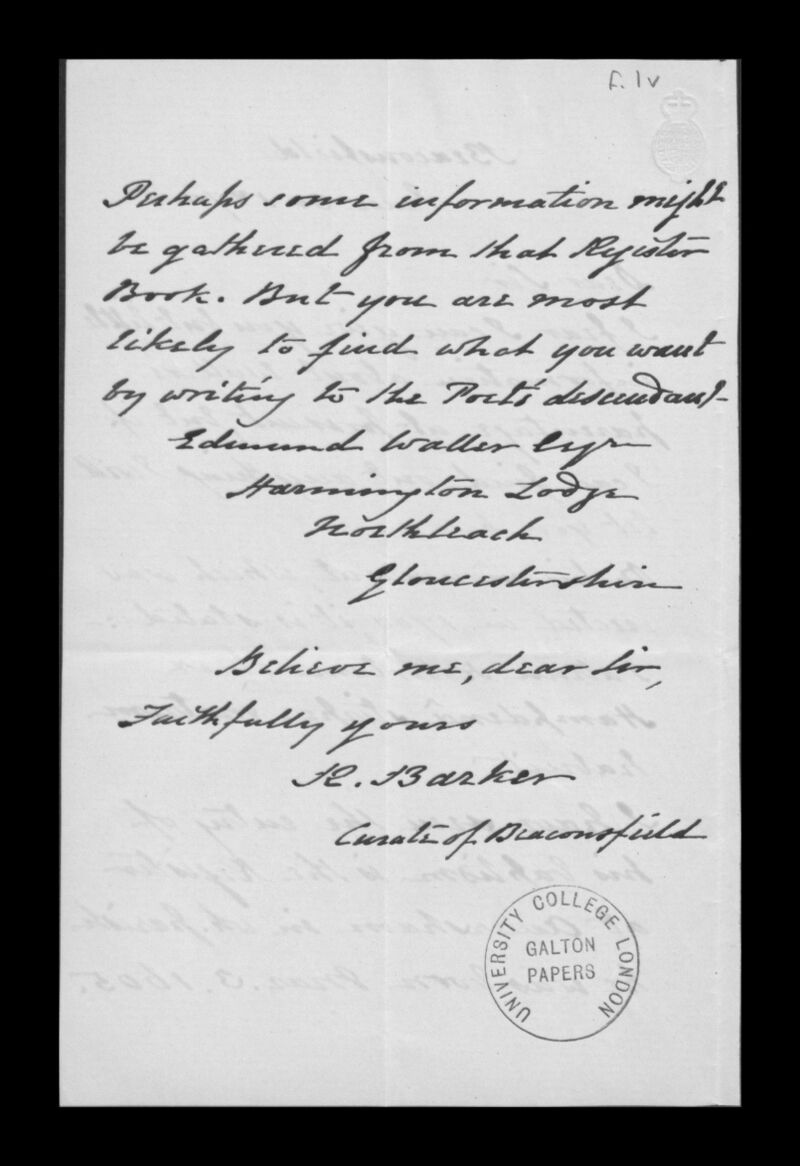 f.1v
Perhaps some information might
be gathered from that Register
Book. But you are most
likely to find what you want
by writing to the Poet's descendant
Edmund Waller Esqr
Farmington Lodge
Northleach
Gloucestershire
Believe me, dear Sir,
Faithfully yours
R. Barker
Curate of Beaconsfield
UNIVERSITY COLLEGE LONDON
GALTON
PAPERS